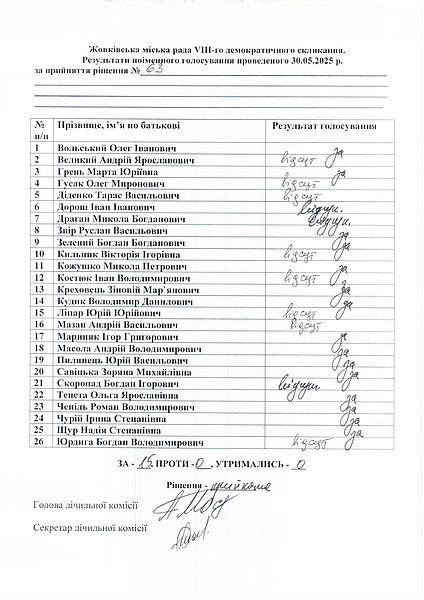 Жовківська міська рада VІІІ-го демократичного скликання.
Результати поіменного голосування проведеного 30.05.2025 р.
за прийняття рішення № 63
№ п/п Прізвище, ім’я по батькові Результат голосування
1 Вольський Олег Іванович за
2 Великий Андрій Ярославович відсут
3 Грень Марта Юріївна за
4 Гусак Олег Миронович відсут
5 Діденко Тарас Васильович відсут
6 Дорош Іван Іванович
7 Драган Микола Богданович
8 Звір Руслан Васильович за
9 Зелений Богдан Богданович за
10 Кильник Вікторія Ігорівна відсут
11 Кожушко Микола Петрович за
12 Костюк Іван Володимирович відсут
13 Креховець Зіновій Мар’янович за
14 Кудик Володимир Данилович за
15 Ліпар Юрій Юрійович відсут
16 Мазан Андрій Васильович відсут
17 Мариняк Ігор Григорович за
18 Масола Андрій Володимирович за
19 Пилипець Юрій Васильович за
20 Савіцька Зоряна Михайлівна за
21 Скоропад Богдан Ігорович
22 Тенета Ольга Ярославівна за
23 Чепіль Роман Володимирович за
24 Чурій Ірина Степанівна за
25 Щур Надія Степанівна за
26 Юрдига Богдан Володимирович відсут
ЗА - 15, ПРОТИ - 0, УТРИМАЛИСЬ - 0
Рішення - прийнято
Голова лічильної комісії
Секретар лічильної комісії